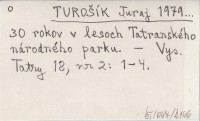 o
TUROŠÍK Juraj 1979...
30 rokov v lesoch Tatranského
národného parku. – Vys.
Tatry 18, nr 2: 1-4.